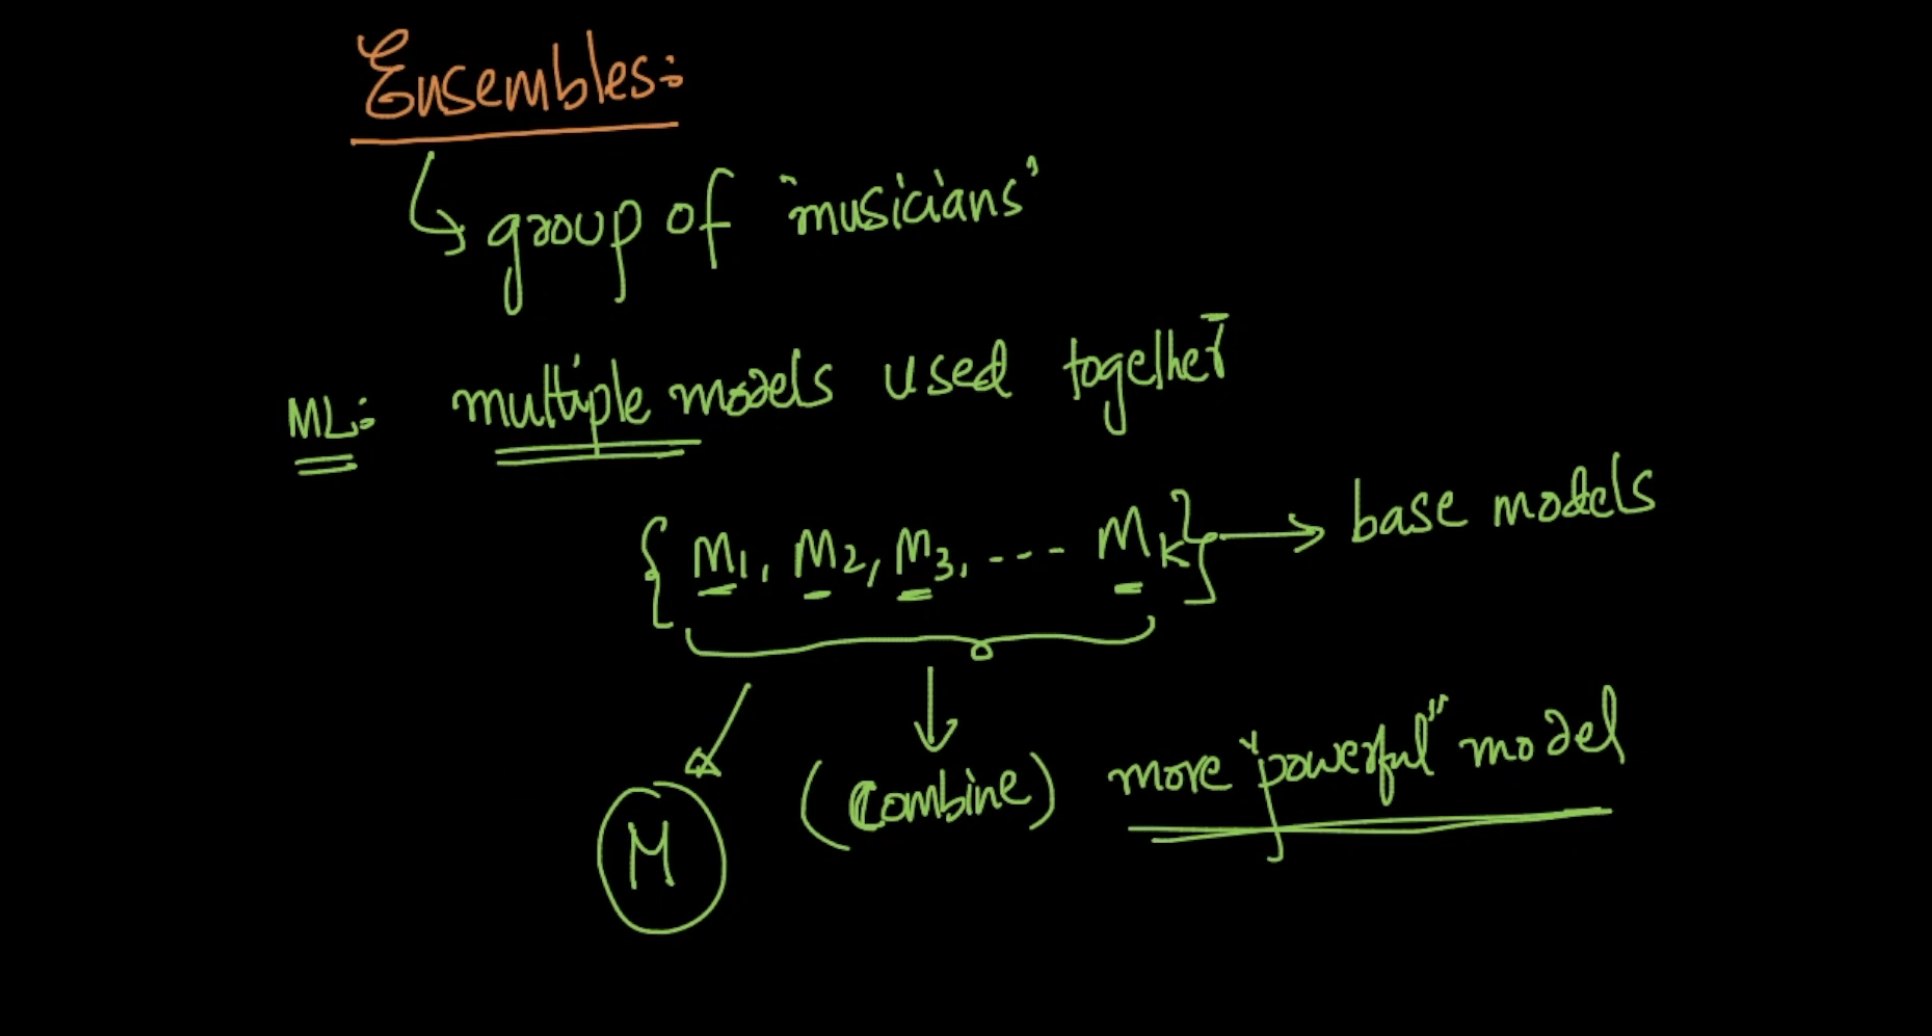 Ensembles:
↳ group of 'musicians'
ML: multiple models used together
{M1, M2, M3, ---- MK} → base models
(Combine) more "powerful" model
M